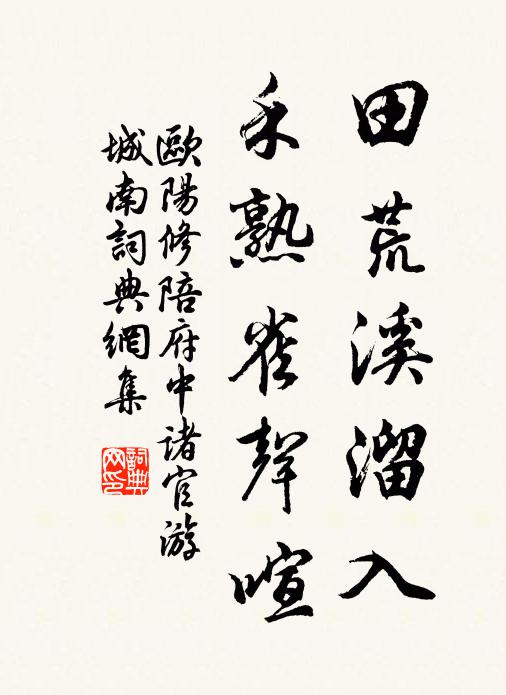 田荒溪溜入
禾熟雀聲喧
歐陽修陪府中諸官游
城南詞典網集
詞典
网印